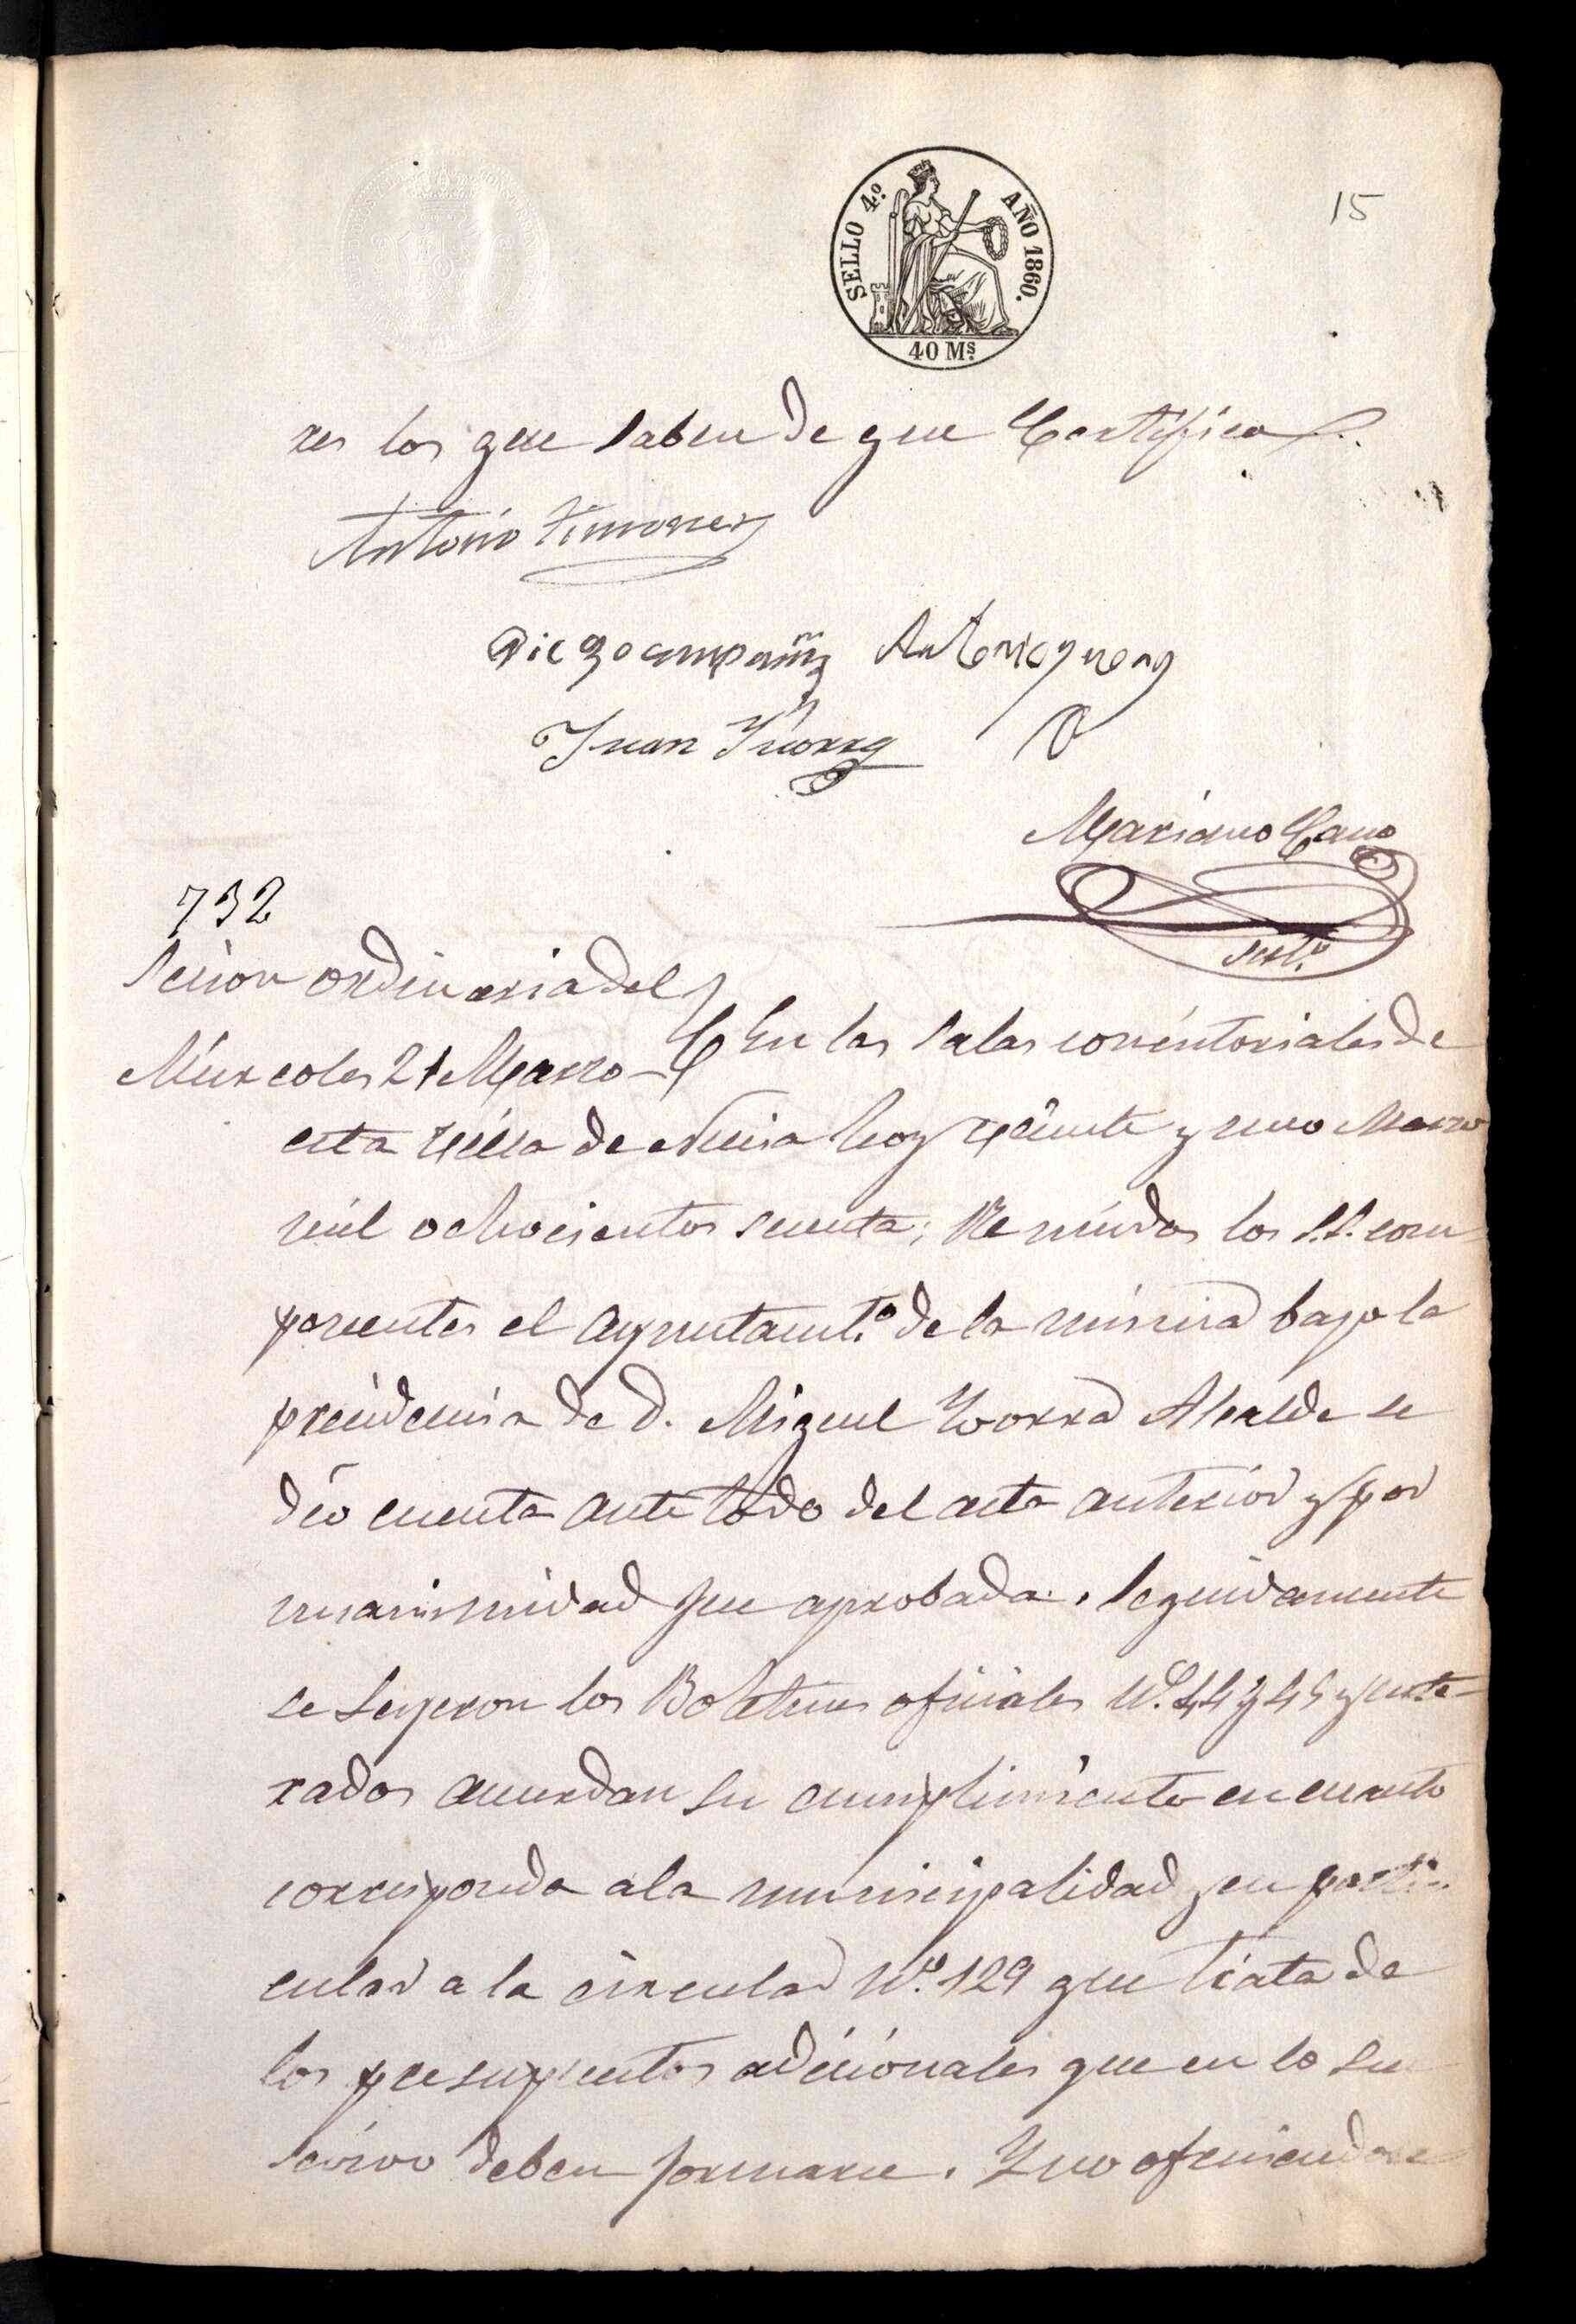 SELLO 4º. AÑO 1860.
40 Ms.
15
res los que saben de que Certifico
Antonio Ximenez
Juan Yvorra
Mariano Cano
Srio.
732
Sesion ordinaria del
Miercoles 21 Marzo
En las salas consistoriales de
esta villa de Nucia hoy veinte y uno Marzo
mil ochocientos sesenta; Reunidos los S.S. com
ponentes el Ayuntamto. de la misma bajo la
presidencia de D. Miguel Yvorra Alcalde se
dio cuenta ante todo del acta anterior y por
unanimidad fue aprobada. Seguidamente
se leyeron los Boletines oficiales Nos. 44 y 45 y ente
rados acuerdan su cumplimiento en cuanto
corresponda a la municipalidad y en parti
cular a la circular No. 129 que trata de
los presupuestos adicionales que en lo su
cesivo deben formarse. Y no ofreciendose